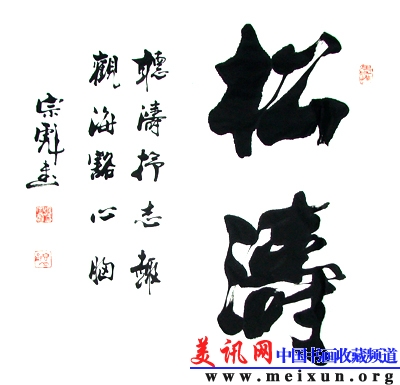 松濤
聽濤抒志趣
觀海豁心胸
宗彪書
美讯网 中国书画收藏频道
www.meixun.org